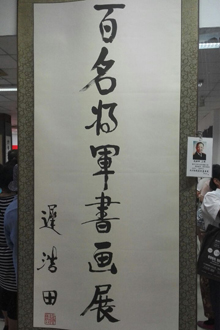 百名将軍書画展
遲浩田